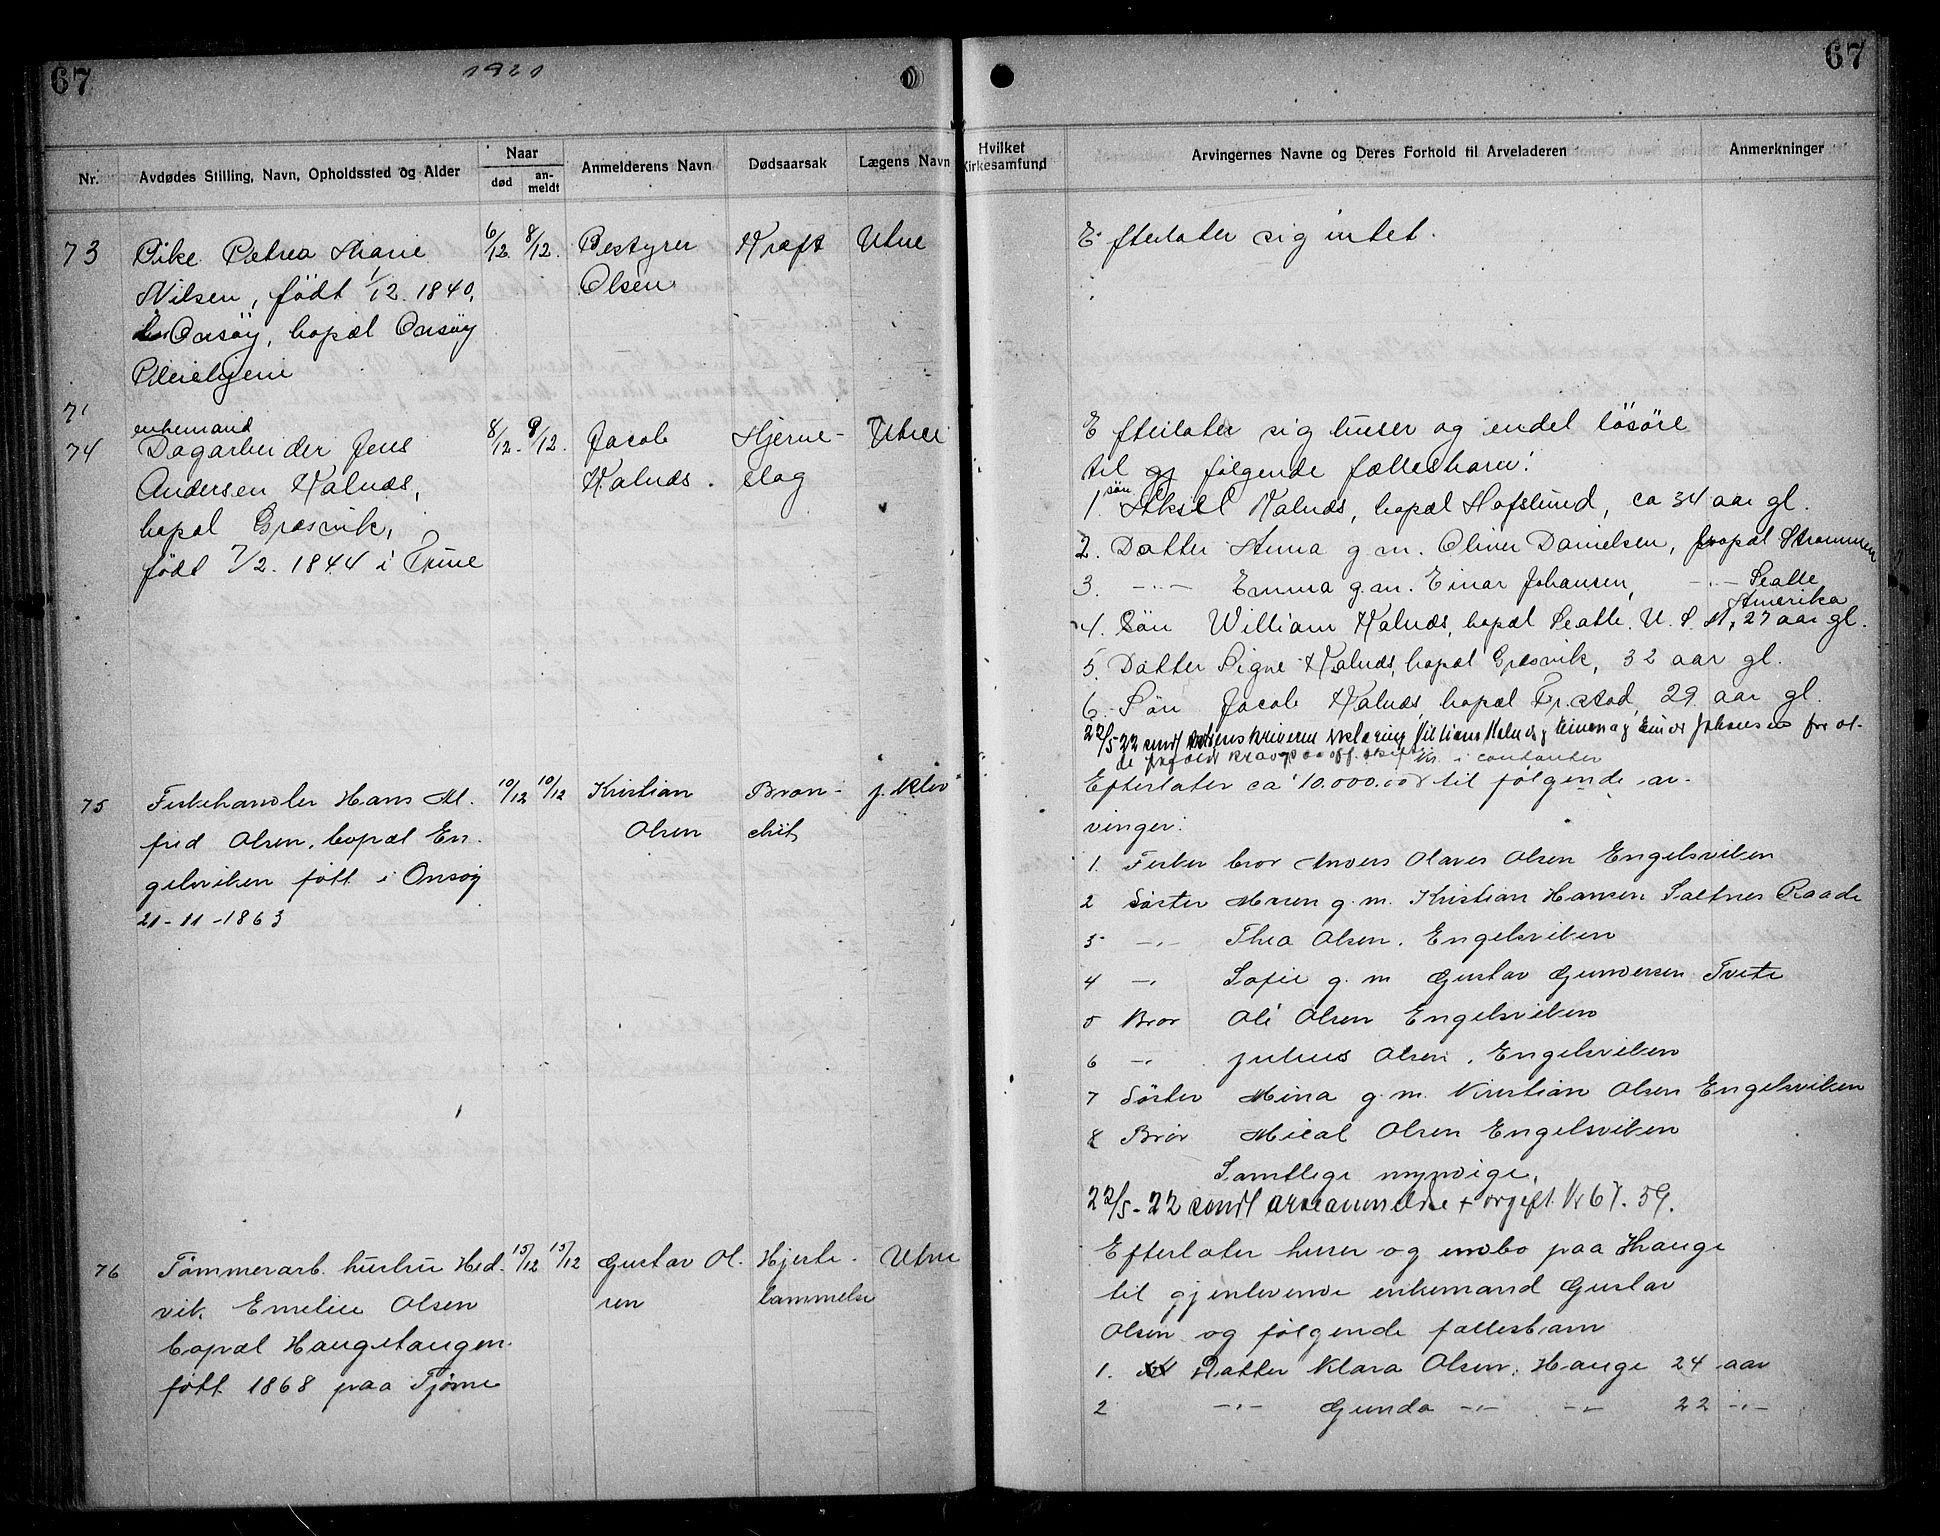 67
1921
67
Nr.
Avdødes Stilling, Navn, Opholdssted og Alder
Naar
død
an-
meldt
Anmelderens Navn
Dødsaarsak
Lægens Navn
Hvilket
Kirkesamfund
Arvingernes Navne og Deres Forhold til Arveladeren
Anmerkninger
73
Pike Petrea Marie
Nilsen, født 1/12. 1840,
Onsøy, bopæl Onsøy
Pleiehjem
6/12. 8/12.
Bestyrer
Olsen
Kræft
Utne
Efterlater sig intet.
71
74
enkemand
Dagarbeider Jens
Andersen Kalnæs,
bopæl Græsvik,
født 7/2. 1844 i Tune
8/12. 9/12.
Jacob
Kalnæs.
Hjerne-
slag
Utne
Efterlater sig huser og endel løsøre
til følgende fællesbarn:
1. søn Aksel Kalnæs, bopæl Hafslund, ca 34 aar gl.
2. Datter Anna g.m. Oliver Danielsen, bopæl Strømmen
3. -"- Emma g.m. Einar Johansen, -"- Seatle
Amerika
4. Søn William Kalnæs, bopæl Seatle. U.S.A, 27 aar gl.
5. Datter Signe Kalnæs, bopæl Græsvik, 32 aar gl.
6. Søn Jacob Kalnæs, bopæl Fr.stad, 29 aar gl.
22/5-22 sendt erklæring Einar Johansen for at
kr. i contanter
75
Fiskehandler Hans Al-
fred Olsen, bopæl En-
gelsviken født i Onsøy
21-11-1863
10/12 10/12
Kristian
Olsen
Bron-
chit
J. Klev
Efterlater ca 10.000.00 til følgende ar-
vinger:
1. Fisker bror Anders Olaves Olsen Engelsviken
2 Søster Maren g.m. Kristian Hansen Saltnes Raade
3 -"- Thea Olsen. Engelsviken
4 -"- Sofie g.m Gustav Gundersen Tvete
5 Bror Ole Olsen Engelsviken
6 -"- Julius Olsen. Engelsviken
7 Søster Mina g.m. Kristian Olsen Engelsviken
8 Bror Mical Olsen Engelsviken
Samtlige myndige.
22/5-22 sendt arveanmeldelse + avgift kr 67.59.
76
Tømmerarb. hustru Hed-
vik Emelie Olsen
bopæl Haugetangen
født 1868 paa Tjøme
15/12 15/12
Gustav Ol-
sen
Hjerte-
lammelse
Utne
Efterlater huser og indbo paa Hauge
til gjenlevende enkemand Gustav
Olsen og følgende fællesbarn
1. Datter Klara Olsen, Hauge 24 aar
2 -"- Gunda -"- -"- 22 -"-